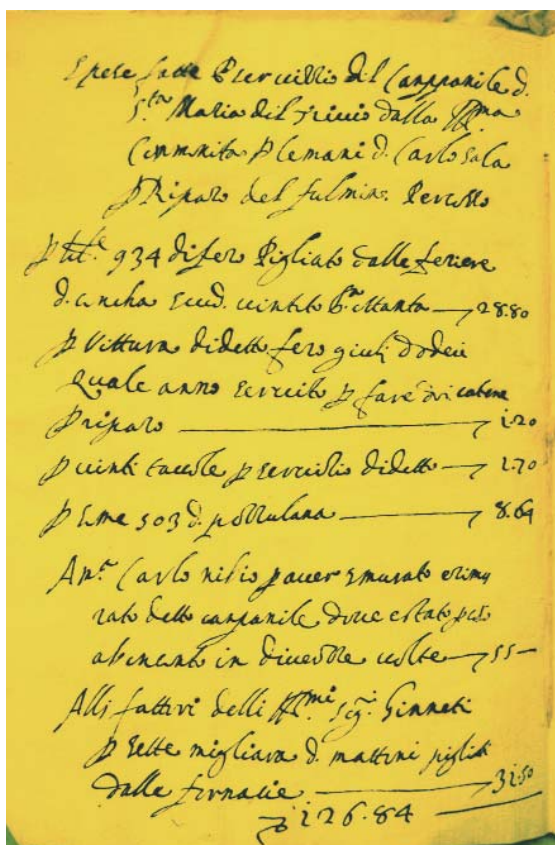 Spese fatte P servitio del Campanile d.
S.ta Maria del Trivio dalla Ill.ma
Communita P le mani d. Carlo Sala
P Riparo del fulmine
P lib.e 934 di fero Pigliato dalle feriere
d. Scud. vintito b. ottanta 28.80
P Vittura di detto fero giulj dodeci
Quale anno servito P fare catene
P riparo 1.20
P vinti tavole P servitio di detto 1.70
P some 503 d. pozzulana 8.64
A m.o Carlo P aver smurato e rimu
rato detto campanile dove e stato
in diverse volte 55 —
Alli fattori delli Ill.mi Sig.i Ginneti
P sette migliara d. mattoni pigliati
dalle fornacie 31.50
126.84